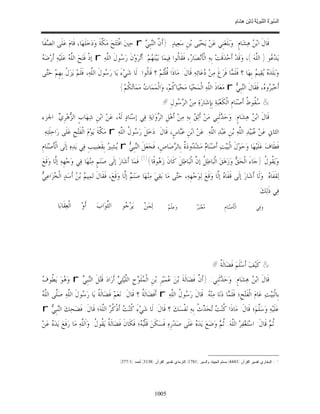 السيرة النبوية لابن هشام
قَالَ ابْنُ هِشَامٍ: وَبَلَغَنِي عَنْ يَحْيَى بْنِ سَعِيدٍ أَنَّ النَّبِيَّ حِينَ افْتَتَحَ مَكَّةَ وَدَخَلَهَا، قَامَ عَلَى الصَّفَا
يَدْعُو اللَّهَ، وَقَدْ أَحْدَقَتْ بِهِ الْأَنْصَارُ، فَقَالُوا فِيمَا بَيْنَهُمْ: أَتُرَوْنَ رَسُولَ اللَّهِ إذْ فَتَحَ اللَّهُ عَلَيْهِ أَرْضَهُ
وَبَلَدَهُ يُقِيمُ بِهَا ؟ فَلَمَّا فَرَغَ مِنْ دُعَائِهِ قَالَ: مَاذَا قُلْتُمْ ؟ قَالُوا: لَا شَيْءَ يَا رَسُولَ اللَّهِ، فَلَمْ يَزَلْ بِهِمْ حَتَّى
أَخْبَرُوهُ، فَقَالَ النَّبِيُّ مَعَاذَ اللَّهِ الْمَحْيَا مَحْيَاكُمْ، وَالْمَمَاتُ مَمَاتُكُمْ.
& سُقُوطُ أَصْنَامِ الْكَعْبَةِ بِإِشَارَةِ مِنْ الرَّسُولِ #
قَالَ ابْنُ هِشَامٍ: وَحَدَّثَنِي مَنْ أَثِقُ بِهِ مِنْ أَهْلِ الرِّوَايَةِ فِي إسْنَادٍ لَهُ، عَنْ ابْنِ شِهَابٍ الزُّهْرِيِّ الجزء
الثاني عَنْ عُبَيْدِ اللَّهِ بْنِ عَبْدِ اللَّهِ عَنْ ابْنِ عَبَّاسٍ، قَالَ: دَخَلَ رَسُولُ اللَّهِ مَكَّةَ يَوْمَ الْفَتْحِ عَلَى رَاحِلَتِهِ
فَطَافَ عَلَيْهَا وَحَوْلَ الْبَيْتِ أَصْنَامٌ مَشْدُودَةٌ بِالرَّصَاصِ، فَجَعَلَ النَّبِيُّ يُشِيرُ بِقَضِيبٍ فِي يَدِهِ إلَى الْأَصْنَامِ
وَيَقُولُ {جَاءَ الْحَقُّ وَزَهَقَ الْبَاطِلُ إِنَّ الْبَاطِلَ كَانَ زَهُوقًا} فَمَا أَشَارَ إلَى صَنَمٍ مِنْهَا فِي وَجْهِهِ إلَّا وَقَعَ
لِقَفَاهُ وَلَا أَشَارَ إلَى قَفَاهُ إلَّا وَقَعَ لِوَجْهِهِ، حَتَّى مَا بَقِيَ مِنْهَا صَنَمٌ إلَّا وَقَعَ، فَقَالَ تَمِيمُ بْنُ أَسَدٍ الْخُزَاعِيُّ
فِي ذَلِكَ:
وَفِي الْأَصْنَامِ مُعْتَبَرٌ وَعِلْمٌ لِمَنْ يَرْجُو الثَّوَابَ أَوْ الْعِقَابَا
& كَيْفَ أَسْلَمَ فَضَالَةُ #
قَالَ ابْنُ هِشَامٍ: وَحَدَّثَنِي أَنَّ فَضَالَةَ بْنَ عُمَيْرِ بْنِ الْمُلَوَّحِ اللَّيْثِيَّ أَرَادَ قَتْلَ النَّبِيِّ وَهُوَ يَطُوفُ
بِالْبَيْتِ عَامَ الْفَتْحِ، فَلَمَّا دَنَا مِنْهُ قَالَ رَسُولُ اللَّهِ أَفَضَالَةُ ؟ قَالَ: نَعَمْ فَضَالَةُ يَا رَسُولَ اللَّهِ صَلَّى اللَّهُ
عَلَيْهِ وَسَلَّمَ؛ قَالَ: مَاذَا كُنْتُ تُحَدِّثُ بِهِ نَفْسَكَ ؟ قَالَ: لَا شَيْءَ كُنْتُ أَذْكُرُ اللَّهَ؛ قَالَ: فَضَحِكَ النَّبِيُّ
ثُمَّ قَالَ: اسْتَغْفِرْ اللَّهَ ثُمَّ وَضَعَ يَدَهُ عَلَى صَدْرِهِ فَسَكَنَ قَلْبُهُ؛ فَكَانَ فَضَالَةُ يَقُولُ: وَاَللَّهِ مَا رَفَعَ يَدَهُ عَنْ
1005